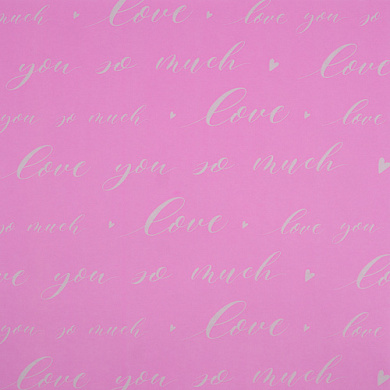 much love love you so
you so much love
you so much love love
love you so much
so much love love you
you so much love
you so much love love
love you so much